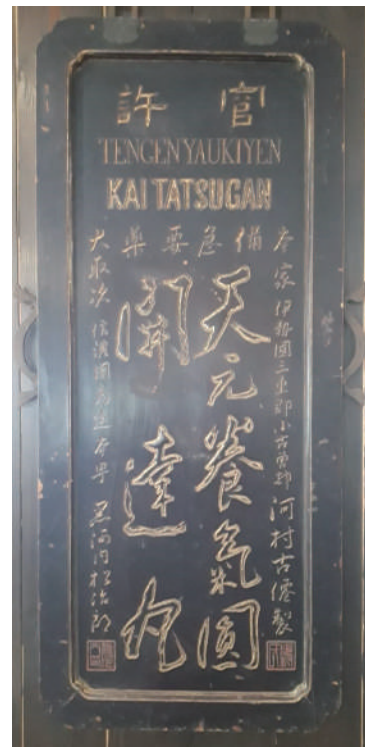 官許
TENGEN YAUKIYEN
KAI TATSUGAN
備急要薬
本家 伊勢國三重郡小古曽村 河村古僊製
天元養氣圓
開達丸
大取次 信濃國 本 黒河内松治郎